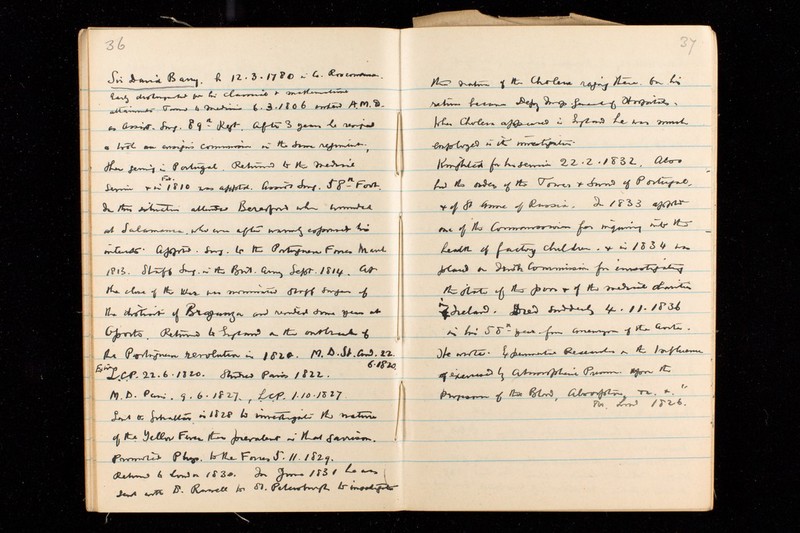 36
Sir David Barry. b 12.3.1780 in Co. Roscommon.
Early distinguished for his classical & mathematical
attainments. Turned to Medicine 6.3.1806 entered A.M.D.
as Assist. Surg. 89th Regt. After 3 years he resigned
& took an ensign's commission in the same regiment,
then serving in Portugal. Returned to the medical
service & in Feb. 1810 was appointed Assist. Surg. 58th Foot.
In this situation attended Beresford when wounded
at Salamanca, who ever after warmly espoused his
interests. Apptd. Surg. to the Portuguese Forces March
1813. Staff Surg. in the Brit. Army Sept. 1814. At
the close of the War was nominated Staff Surgeon of
the district of Braganza and resided some years at
Oporto. Returned to England on the outbreak of
the Portuguese revolution in 1820. M.D. St. And. 22.
6.1820
L.C.P. 22.6.1820. Studied Paris 1822.
M.D. Paris. 9.6.1827, L.C.P. 1.10.1827
Sent to Gibraltar in 1828 to investigate the nature
of the Yellow Fever then prevalent in that Garrison.
Promoted Phys. to the Forces 5.11.1829.
Returned to London 1830. In June 1831 he was
sent with D. Russell to St. Petersburgh to investigate
37
the nature of the Cholera raging there. On his
return became Depy Insp. General of Hospitals.
When Cholera appeared in England he was much
employed in its investigation.
Knighted for his services 22.2.1832. Also
had the order of the Tower & Sword of Portugal,
& of St Anne of Russia. In 1833 apptd
one of the Commissioners for inquiring into the
health of factory children. & in 1834 was
placed on the Commission for investigating
the state of the poor & of the medical charities
in Ireland. Died suddenly 4.11.1836
in his 55th year from aneurysm of the Aorta.
He wrote. Experimental Researches on the Influence
exercised by Atmospheric Pressure upon the
Progression of the Blood, Absorption, &c. &."
Lond 1826.